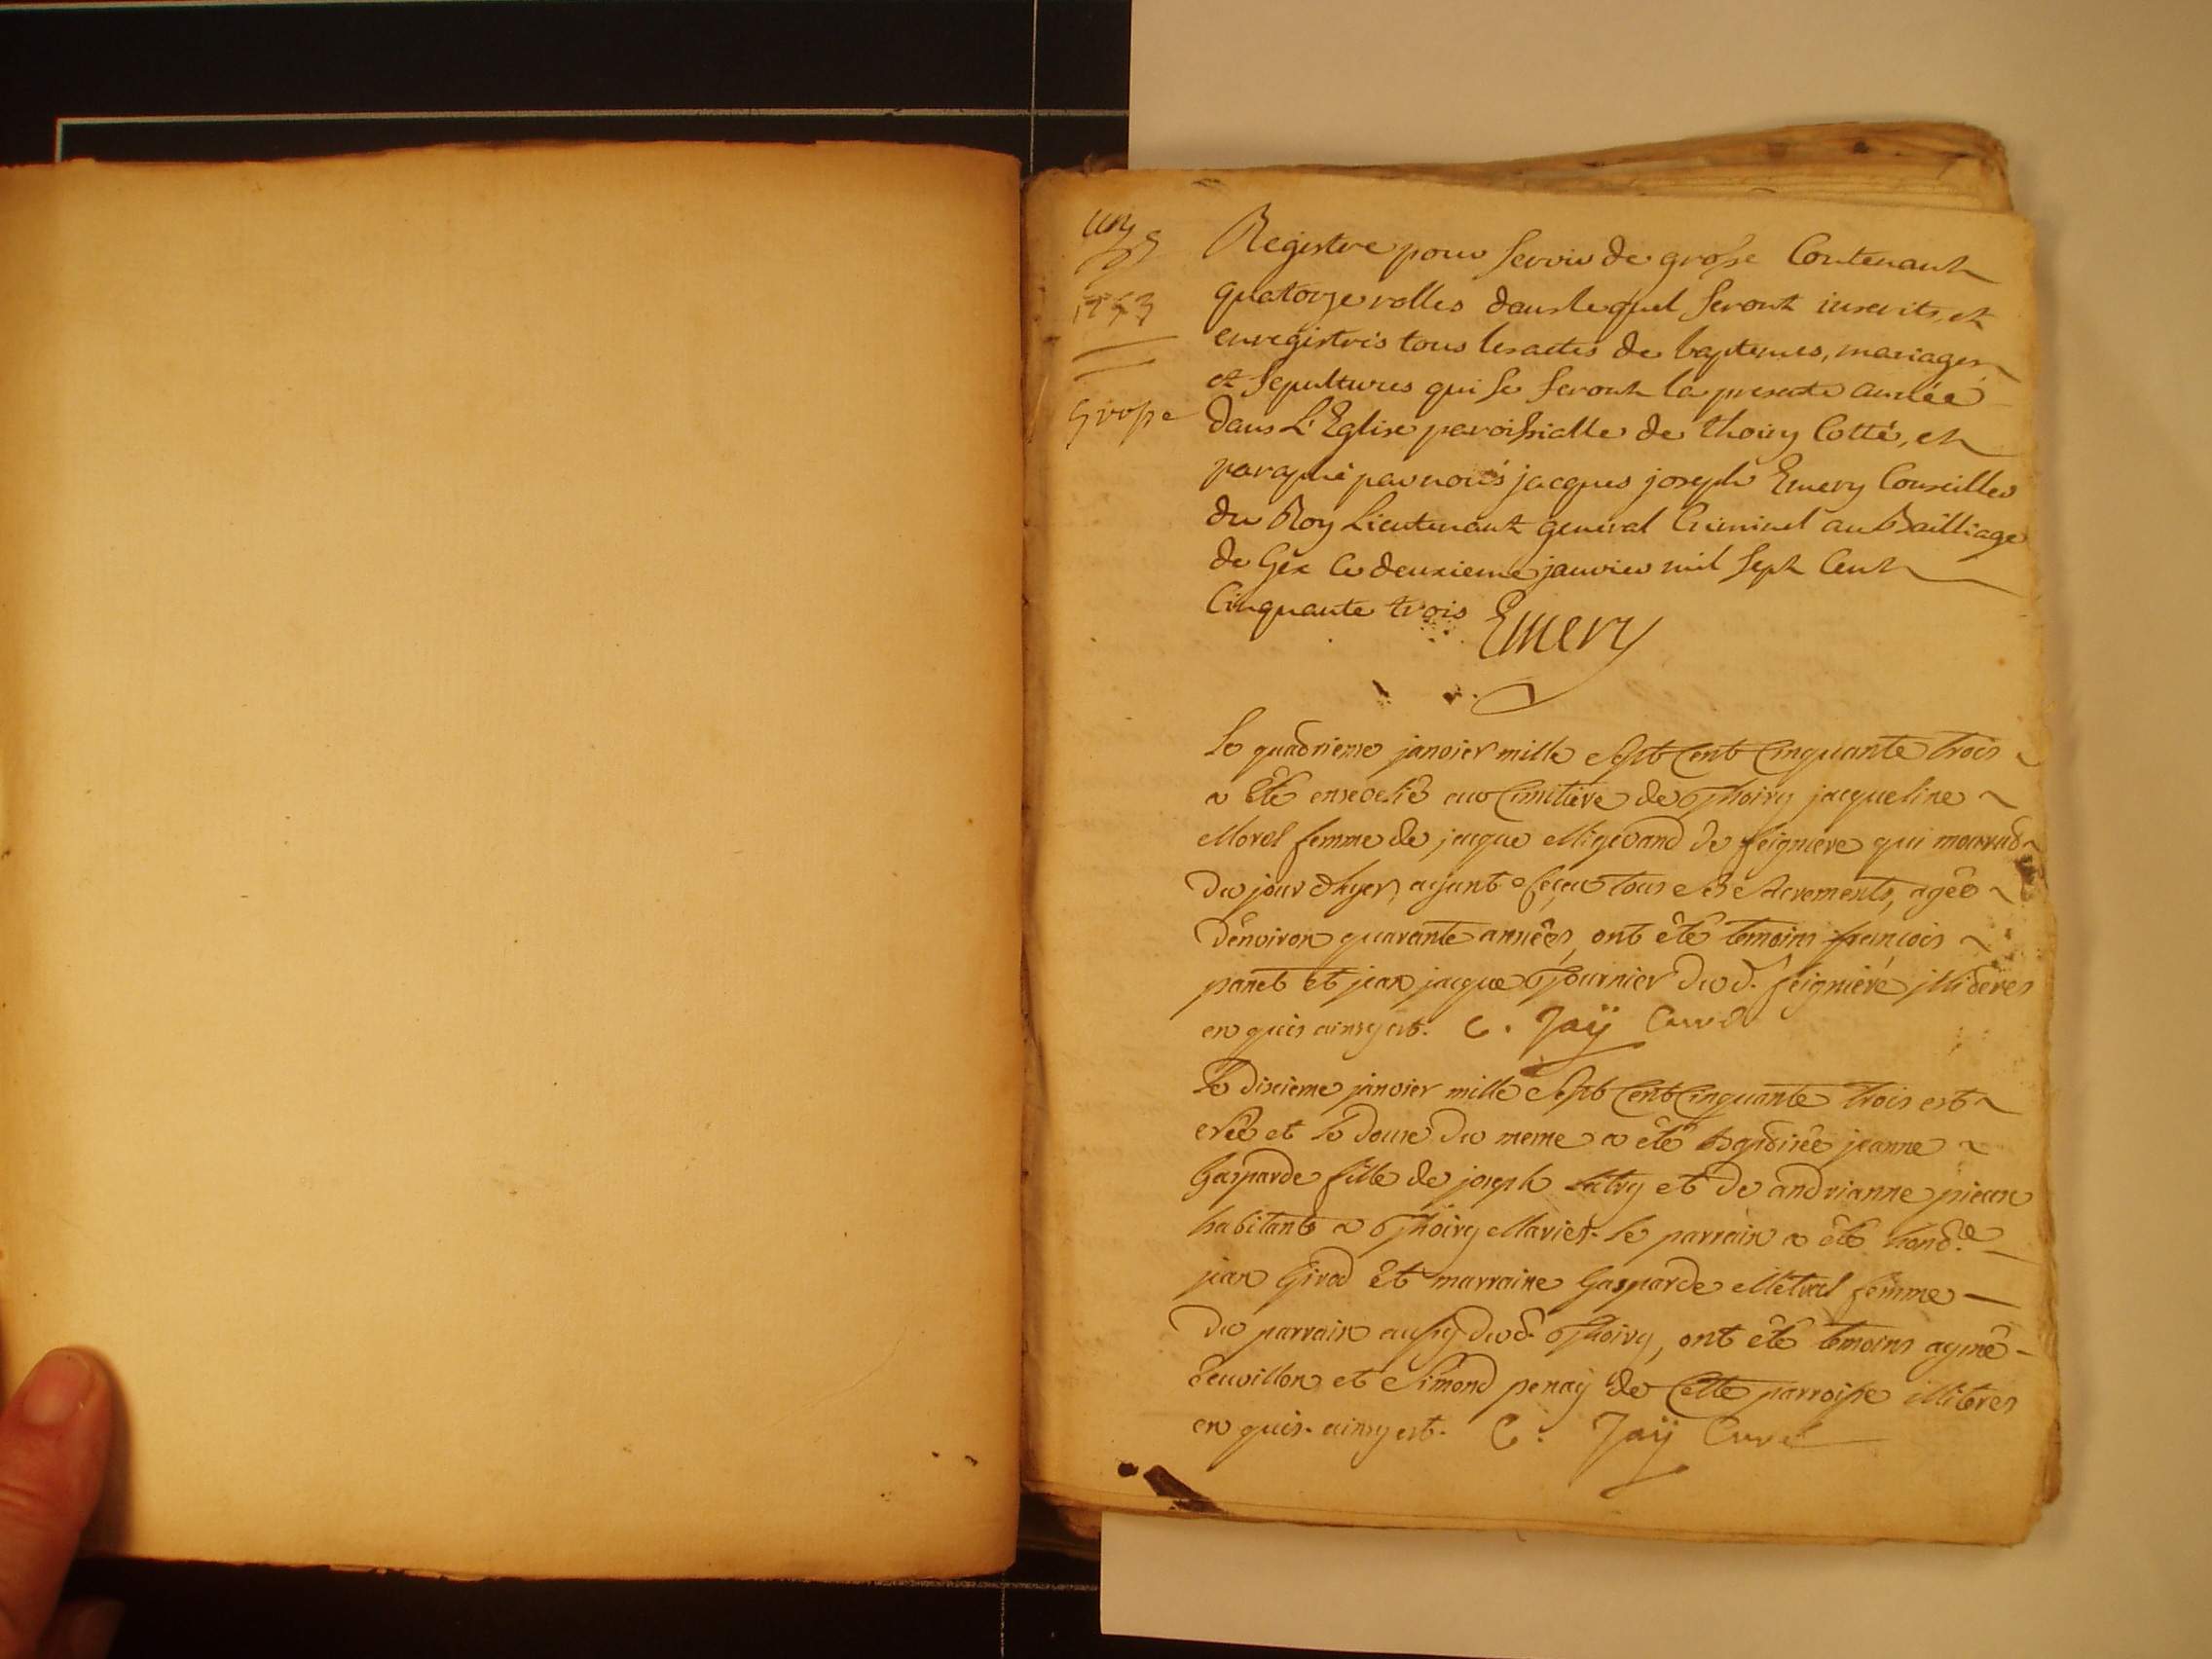 un
1753
Grosse
Registre pour servir de grosse Contenant
quatorze rolles dans lequel seront inscrits, et
enregistrés tous les actes de baptemes, mariages
et sepultures qui se feront la presente année
dans L'Eglise paroissialle de thoiry Cotté, et
paraphé par nous jacques joseph Emery Conseiller
du Roy Lieutenant general Criminel au Bailliage
de Gex Ce deuxieme janvier mil sept Cent
Cinquante trois Emery
Le quadrieme janvier mille Sept Cent Cinquante trois
a été ensevelie au Cimitiere de Thoiry jacqueline
Morel femme de jacque Migevand de feigniere qui mourud
du jour d'hyer, ayant reçeu tous Ses Sacrements, agée
d'environ quarante années, ont été temoins françois
panet et jean jacque fournier du d. feigniere illideres
en quis ainsy est. C. Jaÿ Curé
Le dixieme janvier mille Sept Cent Cinquante trois est
Née et le douze du meme a été Baptisée jeanne
Gasparde fille de joseph et de andrianne
habitants a Thoiry Mariés. le parrain a été hond.le
jean Girod et marraine Gasparde Métral femme
du parrain aussy du d. Thoiry, ont été temoins aymé
et Simond penaÿ de Cette parroisse illiteres
en quis. ainsy est. C. Jaÿ Curé